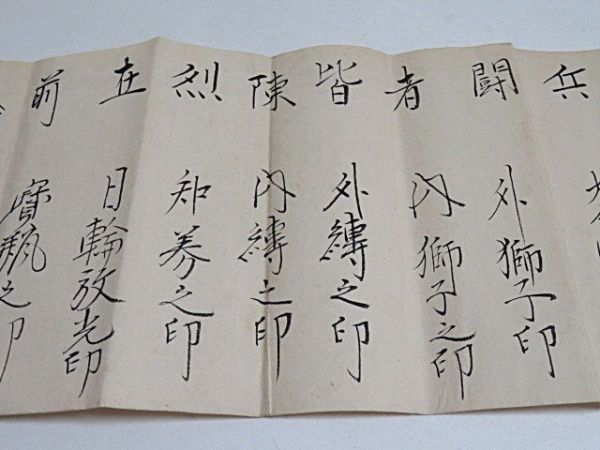 兵
闘 外獅子印
者 内獅子之印
皆 外縛之印
陳 内縛之印
烈 知拳之印
在 日輪放光印
前 寳瓶之印